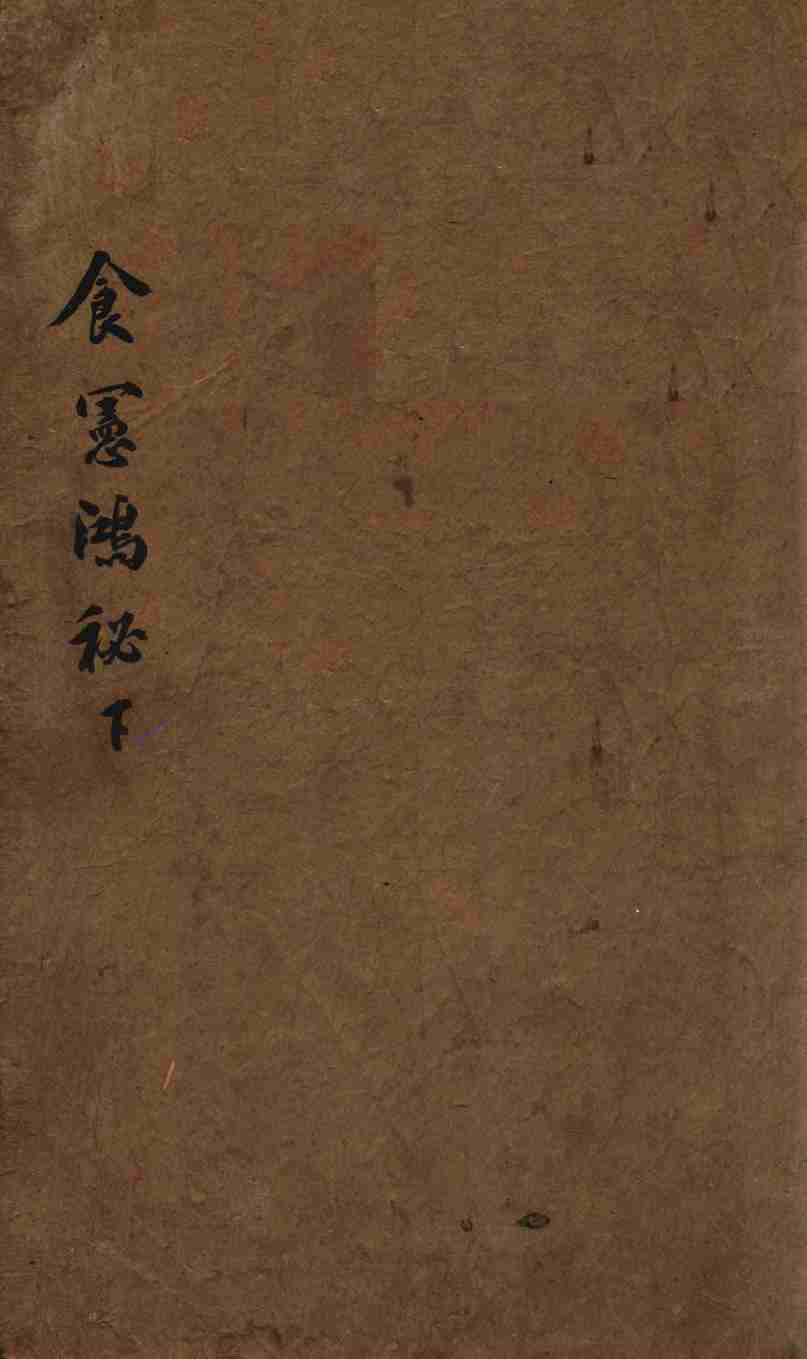 食憲鴻秘下